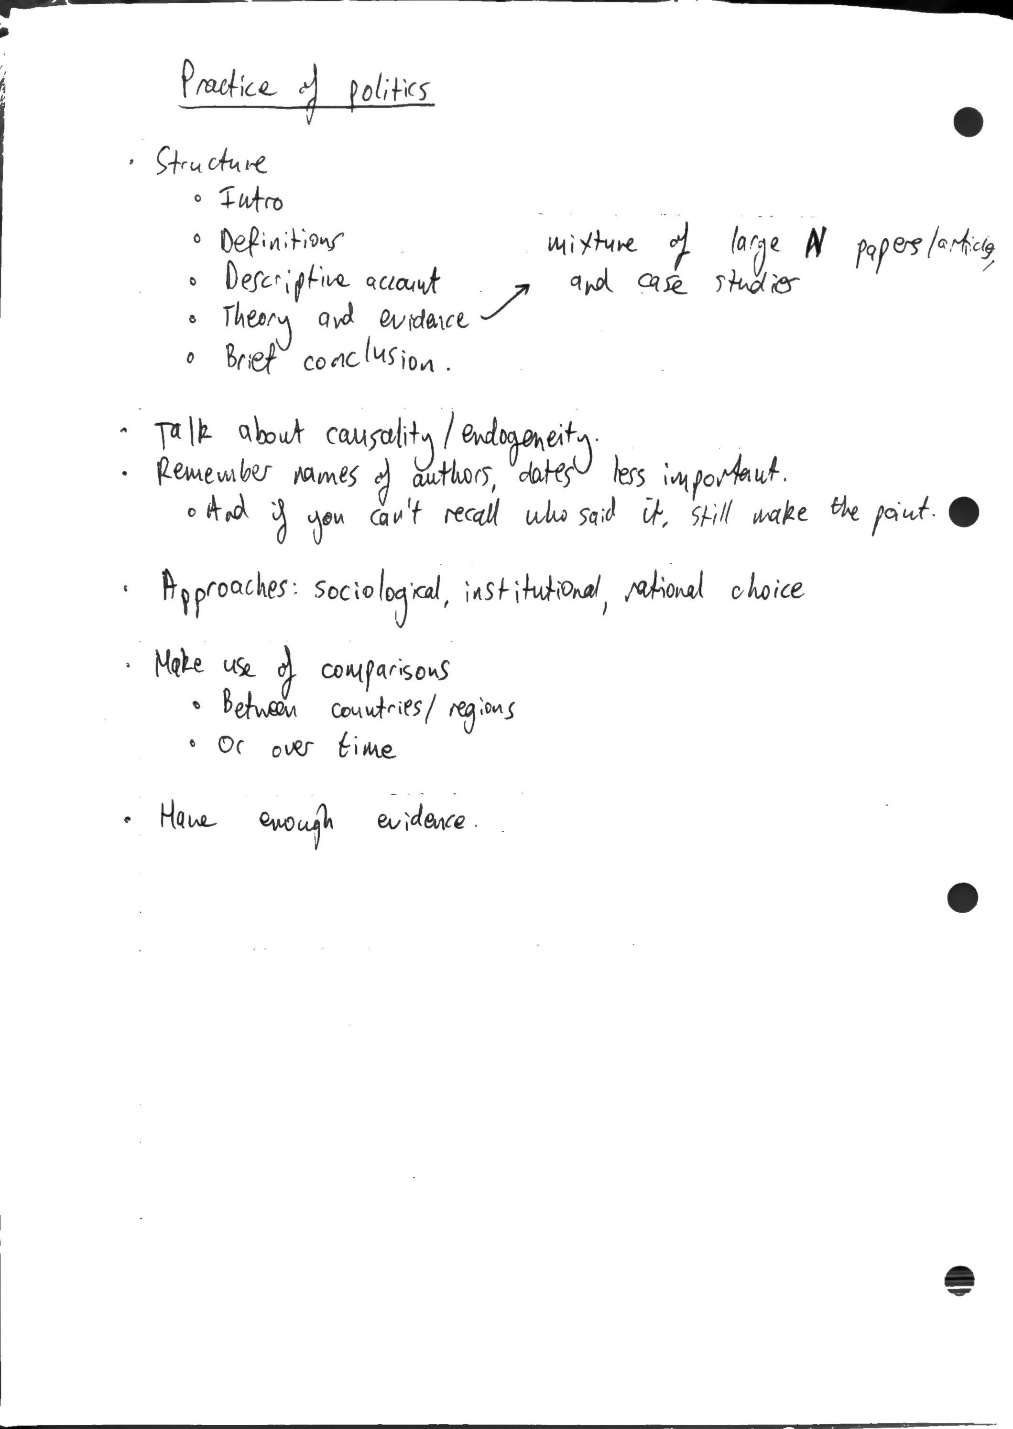 Practice of politics
· Structure
∘ Intro
∘ Definitions
∘ Descriptive account
∘ Theory and evidence
mixture of large N papers/articles,
and case studies
∘ Brief conclusion.
· Talk about causality/endogeneity.
· Remember names of authors, dates less important.
∘ And if you can't recall who said it, still make the point.
· Approaches: sociological, institutional, rational choice
· Make use of comparisons
∘ Between countries/regions
∘ Or over time
· Have enough evidence.